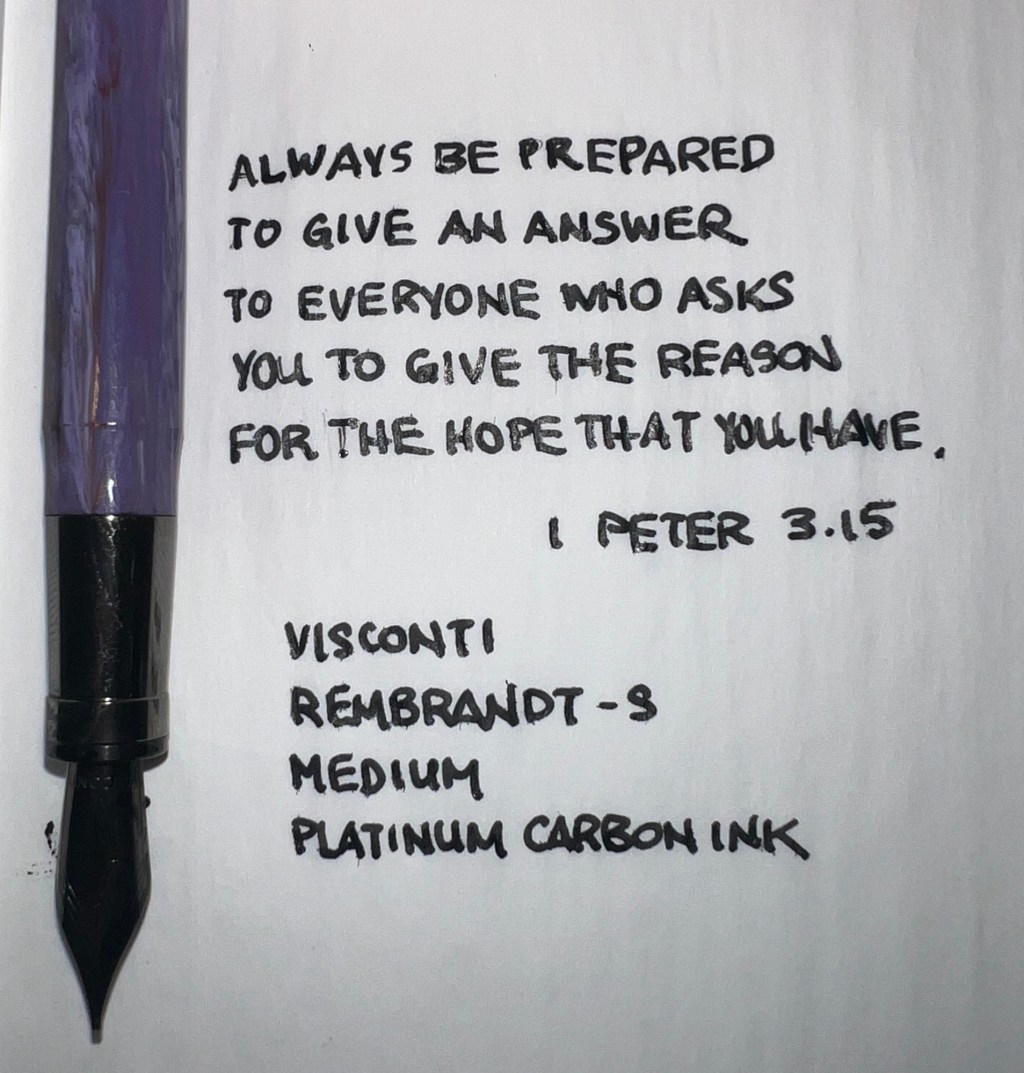 ALWAYS BE PREPARED
TO GIVE AN ANSWER
TO EVERYONE WHO ASKS
YOU TO GIVE THE REASON
FOR THE HOPE THAT YOU HAVE.
1 PETER 3.15
VISCONTI
REMBRANDT-S
MEDIUM
PLATINUM CARBON INK